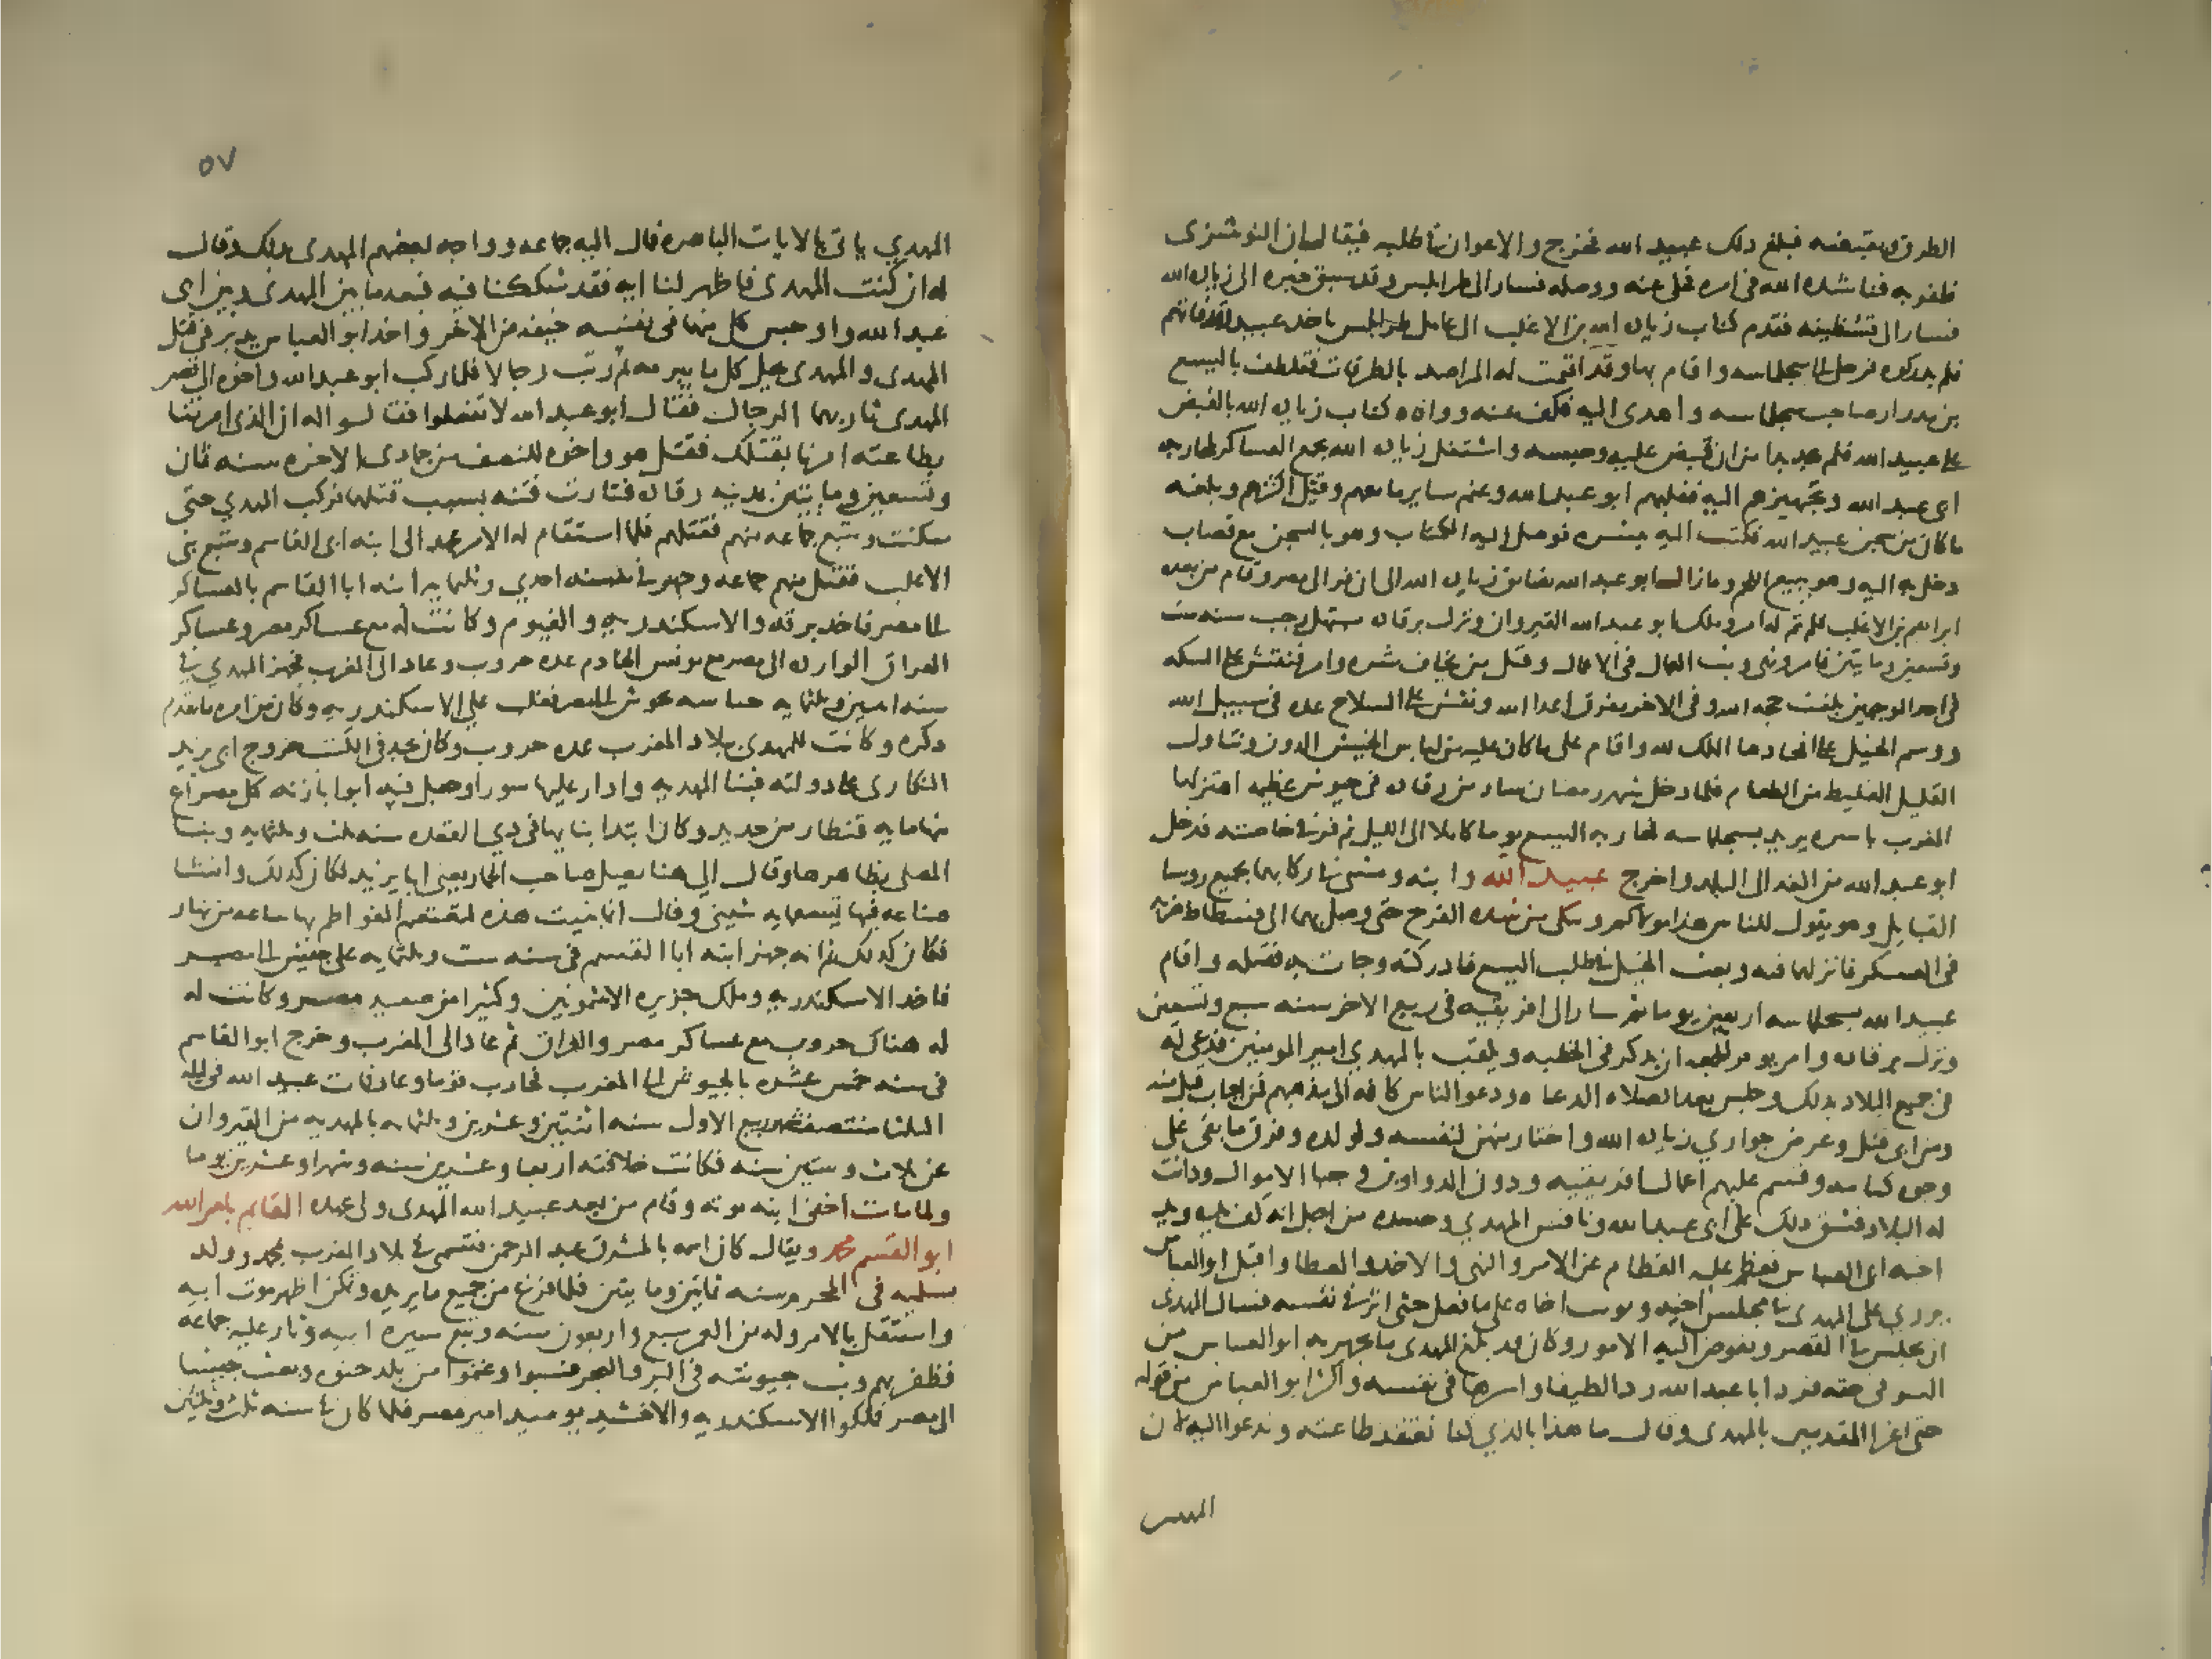 الطرق بقبضه فبلغ دلك عبيد الله فخرج والاعوان في طلبه فيقال ان النوشزى
ظفر به فناشده الله فى امره فخلى عنه ووصله فسار الى طرابلس وقد سبق خبره الى زيادة الله
فسار الى قسطينه فقدم كتاب زيادة الله بن الاغلب الى عامل طرابلس باخد عبيد الله ففاتهم
فلم يدركوه فرحل الى سجلماسه واقام بها وقد اقيمت له المراصد بالطرقات فتلطف باليسع
بن مدرار صاحب سجلماسه واهدى اليه فكف عنه ووافاه كتاب زيادة الله بالقبض
على عبيد الله فلم يجد بدا من ان قبض عليه وحبسه واشتغل زيادة الله بجمع العساكر لمحاربه
ابى عبد الله وتجهيزهم اليه فغلبهم ابو عبد الله وغنم ساير ما معهم وقتل اكثرهم وبلغه
ما كان من سجن عبيد الله فكتب اليه يبشره فوصل اليه الكتاب وهو بالسجن مع قصاب
دخل به اليه وهو يبيع اللحم وما زال ابو عبد الله يضايق زيادة الله الى ان فر الى مصر وقام من بعده
ابراهيم بن الاغلب فلم يتم له امر وملك ابو عبد الله القيروان ونزل برقاده مستهل رجب سنه ست
وتسعين وماتين فامر ونهى وبث العمال فى الاعمال وقتل من يخاف شره وامر فنقش على السكه
فى احد الوجهين بلغت حجه الله وفى الاخر تفرق اعدا الله ونقش على السلاح عده فى سبيل الله
ووسم الخيل على افخادها الملك لله واقام على ما كان عليه من لباس الخشن الدون وتناول
القليل الغليظ من الطعام فلما دخل شهر رمضان سار من رقاده فى جيوش عظيمه اهتز لها
المغرب باسره يريد سجلماسه فحاربه اليسع يوما كاملا الى الليل ثم فر فى خاصته فدخل
ابو عبد الله من الغد الى البلد واخرج عبيد الله وابنه ومشى فى ركابهما بجميع روسا
القبايل وهو يقول للناس هذا مولاكم وبكى من شده الفرح حتى وصل بهما الى فسطاط ضرب
فى العسكر فانزلهما فيه وبعث الخيل فى طلب اليسع فادركته وجات به فقتله واقام
عبيد الله بسجلماسه اربعين يوما ثم سار الى افريقيه فى ربيع الاخر سنه سبع وتسعين
ونزل برقاده وامر يوم الجمعه ان يذكر فى الخطبه ويلقب بالمهدي امير المومنين فدعى له
فى جميع البلاد بدلك وجلس بعد الصلاه الدعاه ودعو الناس كافه الى مذهبهم فمن اجاب قبل منه
ومن ابى قتل وعرض جواري زيادة الله واختار منهن لنفسه ولولده وفرق ما بقى على
وجوه كتامه وقسم عليهم اعمال افريقيه ودون الدواوين وجبا الاموال ودانت
له البلاد فشق دلك على ابى عبد الله ونافس المهدي وحسده من اجل انه كف يده ويد
اخيه ابى العباس فعظم عليه الفطام عن الامر والنهى والاخد والعطا واقبل ابو العباس
يزرى على المهدى فى مجلس اخيه ويونب اخاه على ما فعل حتى اثر فى نفسه فسال المهدى
ان يجلس فى القصر ويفوض اليه الامور وكان قد بلغ المهدى ما يجهر به ابو العباس من
السو فى حقه فرد ابا عبد الله ردا لطيفا واسرها فى نفسه واكثر ابو العباس من قوله
حتى اغرا المقدمين بالمهدى وقال ما هذا بالذي كنا نعتقد طاعته وندعوا اليه لان
المهدي
٥٧
المهدي ياتى بالايات الباهره فمال اليه جماعه وواجه بعضهم المهدى بدلك وقال
له ان كنت المهدى فاظهر لنا ايه فقد شككنا فيه فبعد ما بين المهدى وبين ابى
عبد الله واوجس كل منهما فى نفسه خيفه من الاخر واخد ابو العباس يدبر فى قتل
المهدى والمهدى يحيل كل ما يبرمه ثم رتب رجالا فلما ركب ابو عبد الله واخوه الى قصر
المهدى ثار بهما الرجال فقال ابو عبد الله لا تفعلوا فقالوا له ان الذى امرتنا
بطاعته امرنا بقتلك فقتل هو واخوه للنصف من جمادى الاخره سنه ثمان
وتسعين وماتين بمدينه رقاده فثارت فتنه بسبب قتلهما فركب المهدي حتى
سكنت وتتبع جماعه منهم فقتلهم فلما استقام له الامر عهد الى ابنه ابى القاسم وتتبع بنى
الاغلب فقتل منهم جماعه وجهز فى سنه احدي وثلثمايه ابنه ابا القاسم بالعساكر
الى مصر فاخد برقه والاسكندريه والفيوم وكانت له مع عساكر مصر وعساكر
العراق الوارده الى مصر مع مونس الخادم عده حروب وعاد الى المغرب فجهز المهدي فى
سنه اثنين وثلثمايه حباسه بجيوش الى مصر فغلب على الاسكندريه وكان من امره ما تقدم
دكره وكانت للمهدى ببلاد المغرب عده حروب وكان يجد فى الكتب خروج ابى يزيد
النكارى على دولته فبنا المهديه وادار عليها سورا وجعل فيه ابوابا زنه كل مصراع
منها مايه قنطار من حديد وكان ابتدا بنايها فى ذي القعده سنه ثلث وثلثمايه وبنا
المصلى بظاهرها وقال الى هنا يصل صاحب الحمار يعنى ابا يزيد فكان كدلك وانشا
صناعه فيها تسعمايه شينى وقال انما بنيت هذه لتعتصم الفواطم بها ساعه من نهار
فكان كدلك ثم انه جهز ابنه ابا القسم فى سنه ست وثلثمايه على جيش الى مصر
فاخد الاسكندريه وملك جزيره الاشمونين وكثيرا من صعيد مصر وكانت له
له هناك حروب مع عساكر مصر والعراق ثم عاد الى المغرب وخرج ابو القاسم
فى سنه خمس عشره بالجيوش الى المغرب فحارب قوما وعاد فمات عبيد الله فى ليله
الثلثا منتصف شهر ربيع الاول سنه اثنتين وعشرين وثلثمايه بالمهديه من القيروان
عن ثلاث وستين سنه فكانت خلافته اربعا وعشرين سنه وشهرا وعشرين يوما
ولما مات اخفى ابنه موته وقام من بعد عبيد الله المهدى ولى عهده القايم بامر الله
ابو القسم محمد ويقال كان اسمه بالمشرق عبد الرحمن فتسمى فى بلاد المغرب بمحمد وولد
بسلميه فى المحرم سنه ثمانين وماتين فلما فرغ من جميع ما يريده وتمكن اظهر موت ابيه
واستقل بالامر وله من العمر سبع واربعون سنه وتبع سيره ابيه وثار عليه جماعه
فظفر بهم وبث جيوشه فى البر والبحر فسبوا وغنموا من بلد جنوه وبعث جيشا
الى مصر فملكوا الاسكندريه والاخشيد يوميد امير مصر فلما كان فى سنه ثلث وثلثين